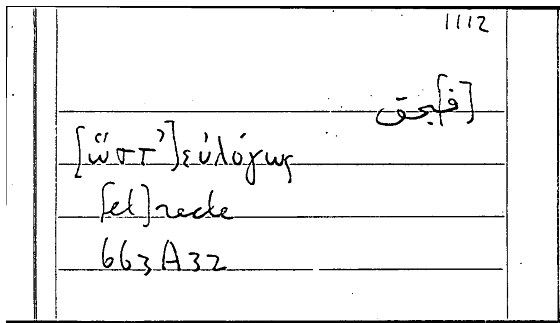 1112
[ف]بحق
[ὥστ’] εὐλόγως
[et] recte
663A32